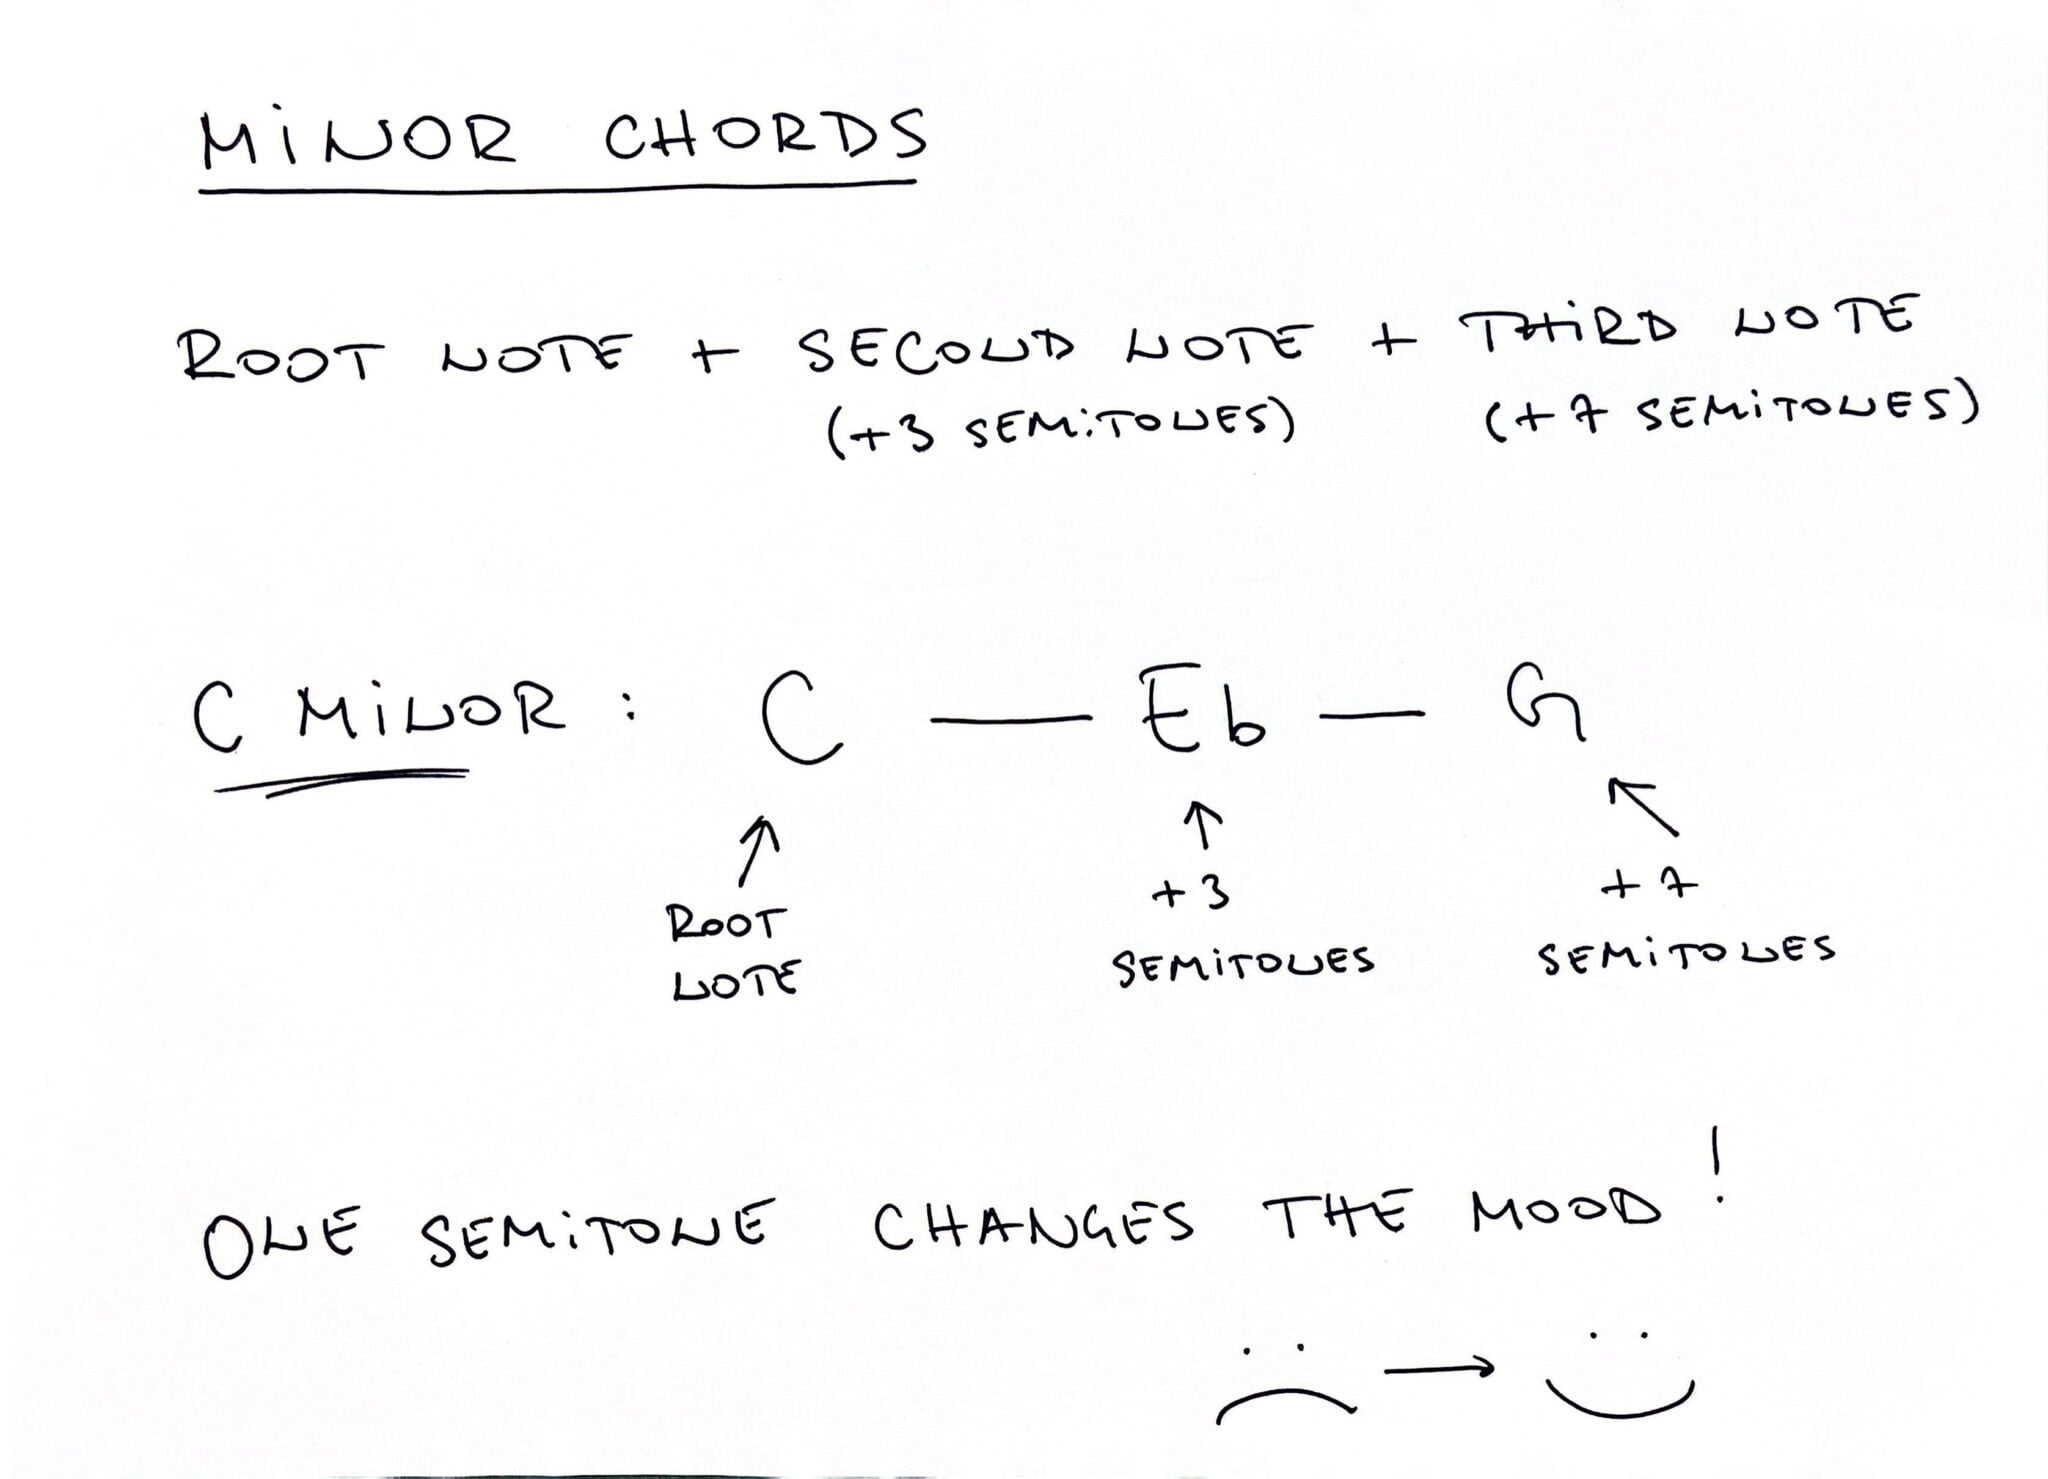 MINOR CHORDS
ROOT NOTE + SECOND NOTE + THIRD NOTE
(+3 SEMITONES) (+7 SEMITONES)
C MINOR : C — Eb — G
ROOT NOTE
+3 SEMITONES
+7 SEMITONES
ONE SEMITONE CHANGES THE MOOD !